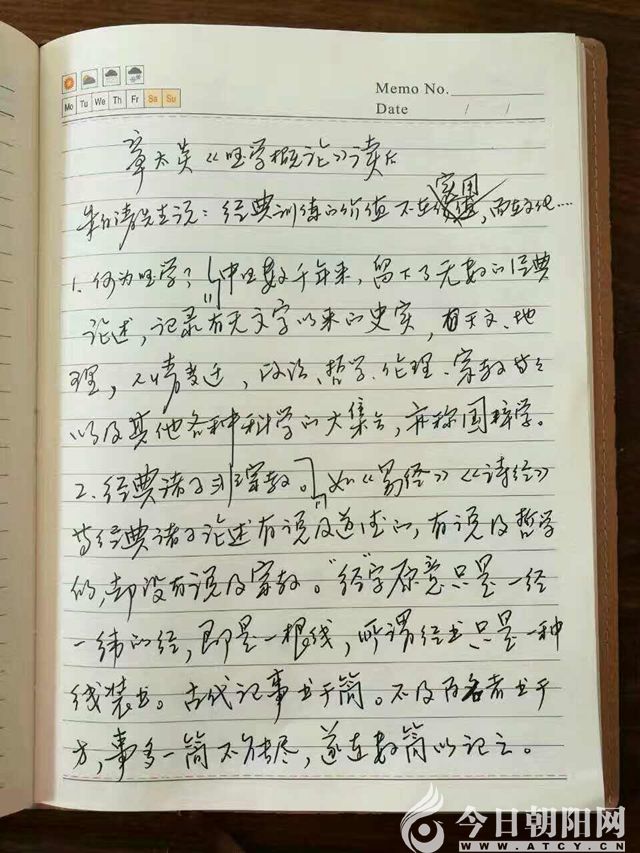 Mo Tu We Th Fr Sa Su
Memo No.
Date / /
章太炎《国学概论》读后
实用
朱自清先生说：经典训练的价值不在，而在文化…
1.何为国学？中国数千年来，留下了无数的经典
论述，记录有无文字以来的史实，有天文、地
理，人情变迁，政治、哲学、伦理、宗教等等
以及其他各种科学的大集合，亦称国粹学。
2.经典诸子非宗教。如《易经》《诗经》
等经典诸子论述有说及道德的，有说及哲学
的，却没有说及宗教。“经”字原意只是一经
一纬的经，即是一根线，所谓经书只是一种
线装书。古代记事书于简。不及百名者书于
方，事多一简不能尽，遂连数简以记之。
今日朝阳网
WWW.ATCY.CN